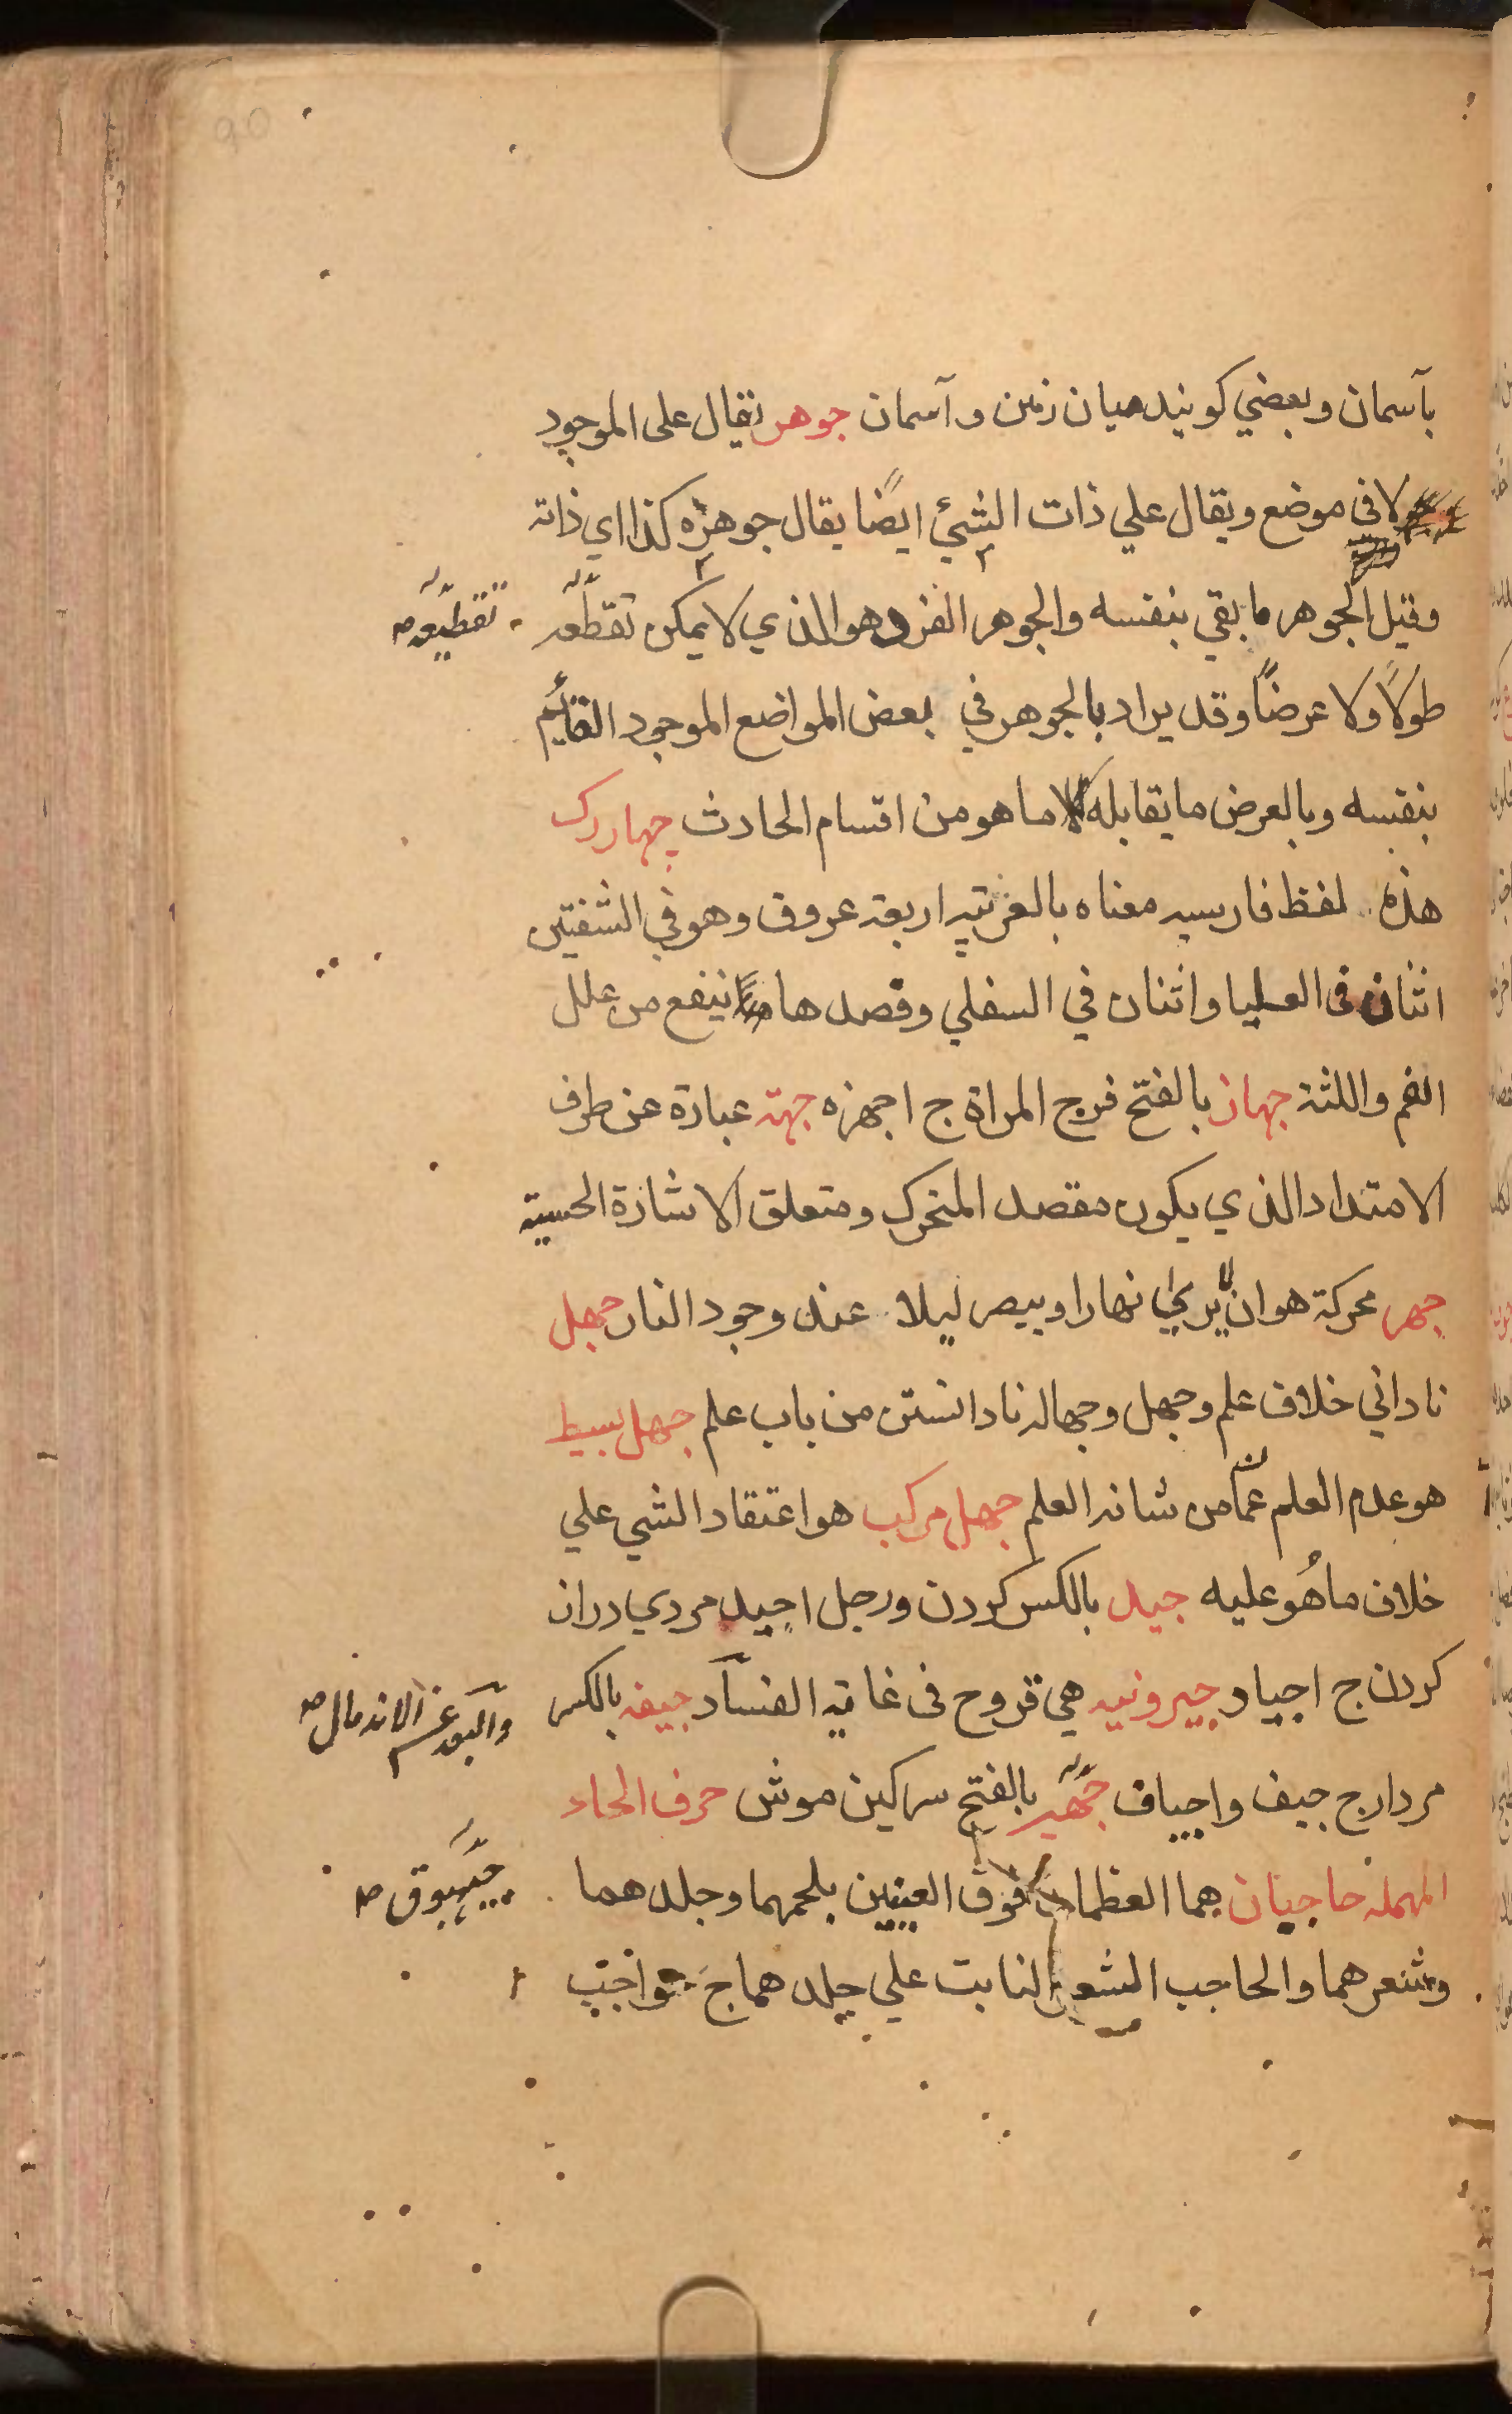 90
بآسمان وبعضي كويند ميان زمين وآسمان جوهر يقال على الموجود
لا في موضع ويقال علي ذات الشيئ ايضًا يقال جوهره كذا اي ذاته
وقيل الجوهر ما بقي بنفسه والجوهر الفرد هو الذي لا يمكن تقطعه
تقطيعه صه
طولًا ولا عرضًا وقد يراد بالجوهر في بعض المواضع الموجود القائيم
بنفسه وبالعرض ما يقابله لا ما هو من اقسام الحادث چهار رك
هذه لفظ فارسيه معناه بالعربيه اربعة عروق وهو في الشفتين
اثنان في العليا واثنان في السفلي وفصدها ينفع من علل
الفم واللثة جهاز بالفتح فرج المراة ج اجهزه جهة عبارة عن طرف
الامتداد الذي يكون مقصد المتحرك ومتعلق الاشارة الحسية
جهر محركة هو ان لا يري نهارا ويبصر ليلا عند وجود النار جهل
ناداني خلاف علم وجهل وجهاله نادانستن من باب علم جهل بسيط
هو عدم العلم عما من شانه العلم جهل مركب هو اعتقاد الشي علي
خلاف ما هُو عليه جيد بالكسر كردن ورجل اجيد مردي دراز
كردن ج اجياد جيرونيه هي قروح في غاية الفساد جيفه بالكسر
والبعد عن الاندمال صه
مردار ج جيف واجياف جهير بالفتح سركين موش حرف الحاء
المهمله حاجبان هما العظمان فوق العينين بلحمهما وجلدهما
وشعرهما والحاجب الشعر النابت علي جلدهما ج حواجب